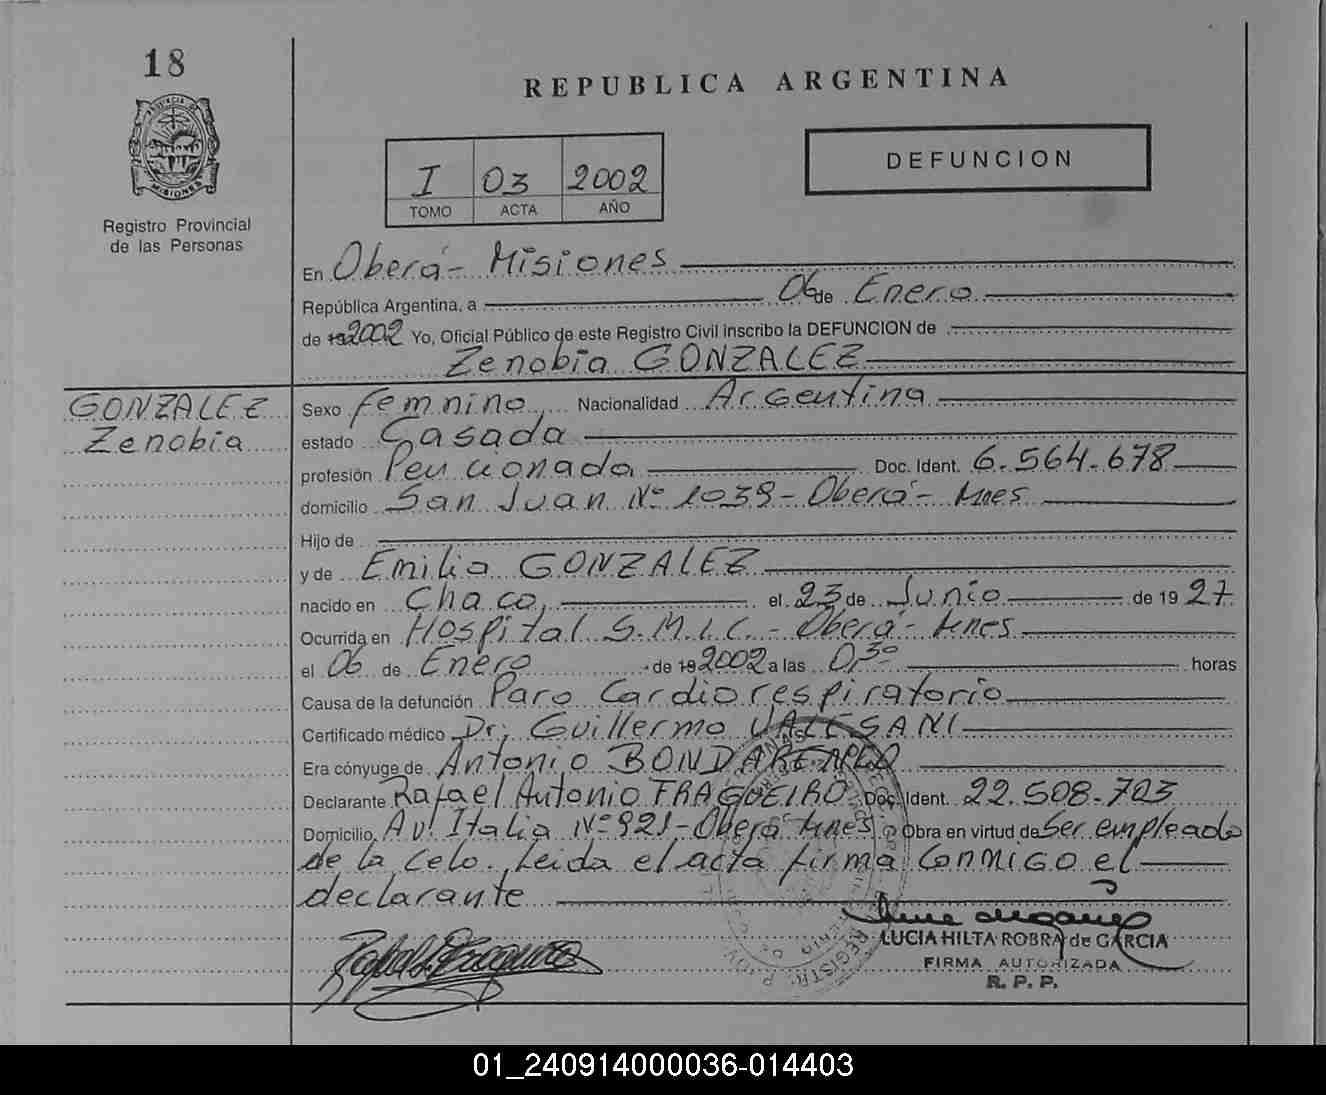 18
REPUBLICA ARGENTINA
PROVINCIA DE MISIONES
Registro Provincial
de las Personas
I 03 2002
TOMO ACTA AÑO
DEFUNCION
En Oberá - Misiones
República Argentina, a 06 de Enero
de 19 2002 Yo, Oficial Público de este Registro Civil inscribo la DEFUNCION de
Zenobia GONZALEZ
GONZALEZ
Zenobia
Sexo femnino Nacionalidad Argentina
estado Casada
profesión Pensionada Doc. Ident. 6.564.678
domicilio San Juan Nº 1039 - Oberá - Mnes
Hijo de
y de Emilia GONZALEZ
nacido en Chaco, el 23 de Junio de 19 27
Ocurrida en Hospital S.M.I.C. - Oberá - Mnes
el 06 de Enero de 19 2002 a las horas
Causa de la defunción Paro Cardiorespiratorio
Certificado médico Dr. Guillermo VALESANI
Era cónyuge de Antonio
Declarante Rafael Antonio FRAGUEIRO Doc. Ident. 22.508.703
Domicilio Av. Italia Nº 921 - Oberá Mnes Obra en virtud de Ser empleado
de la Celo. Leida el acta firma conmigo el
declarante
LUCIA HILTA ROBRA de GARCIA
FIRMA AUTORIZADA
R. P. P.
01_240914000036-014403